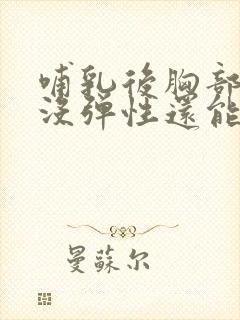 哺乳後胸部
沒彈性還能
曼蘇尔